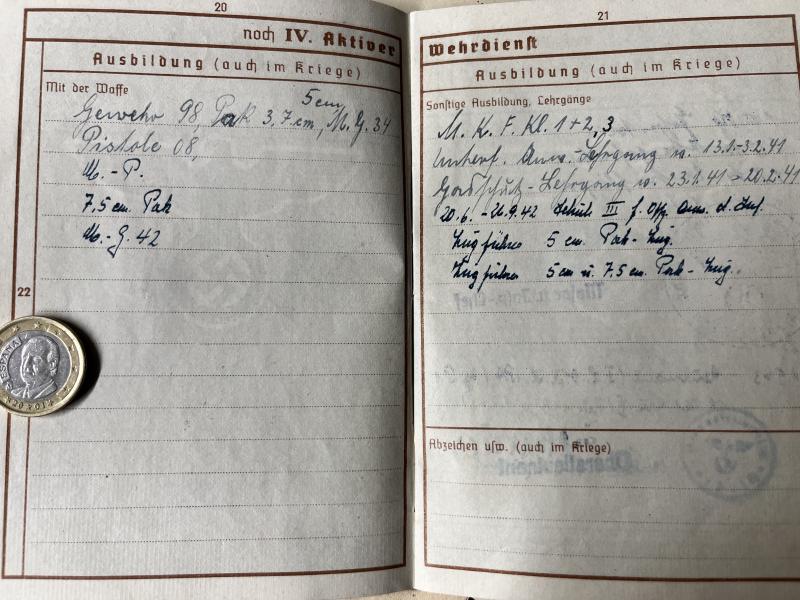 20
noch IV. Aktiver
Ausbildung (auch im Kriege)
Mit der Waffe
5 cm
Gewehr 98, Pak 3,7 cm, M.G. 34
Pistole 08,
M.-P.
7,5 cm Pak
M.-G. 42
22
ESPAÑA
21
Wehrdienst
Ausbildung (auch im Kriege)
Sonstige Ausbildung, Lehrgänge
M. K. F. Kl. 1 + 2, 3
Unterf. Anw.-Lehrgang v. 13.1.-3.2.41
Gasschutz-Lehrgang v. 23.1.41 - 20.2.41
20.6. - 26.9.42 Schule III f. Offz. Anw. d. Inf.
Zugführer 5 cm Pak-Zug.
Zugführer 5 cm u. 7,5 cm Pak-Zug.
Abzeichen usw. (auch im Kriege)